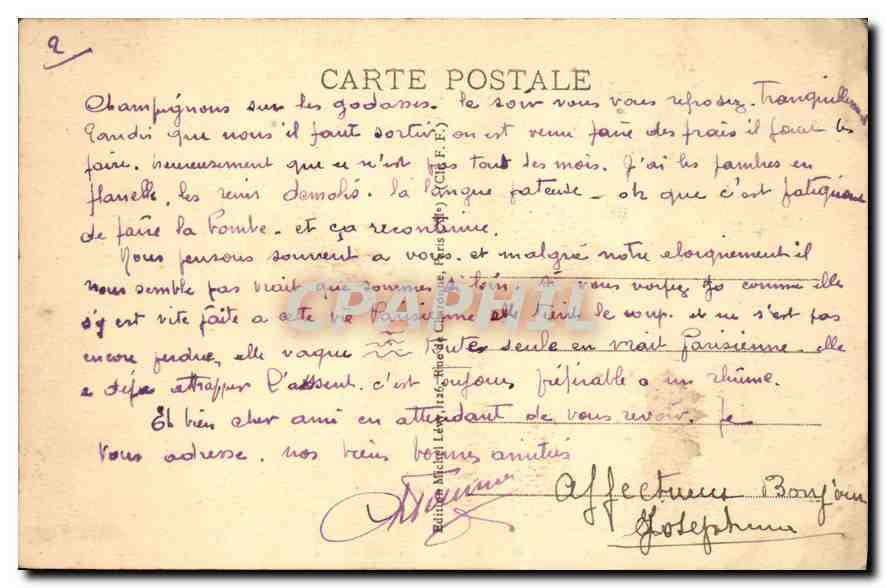 2
CARTE POSTALE
Champignons sur les godasses. le soir vous vous reposez. Tranquillement
Tandis que nous il faut sortir, on est venu faire des frais il faut les
faire. heureusement que ce n'est pas tout les mois. J'ai les jambes en
flanelle, les reins demolis. la langue pateuse. oh que c'est fatiguant
de faire la bombe. et ça recontinue.
Nous pensons souvent a vous. et malgré notre eloignement il
nous semble pas vrait que sommes si loin. Si vous voyez Jo comme elle
s'y est vite faite a cette vie Parisienne elle tient le coup. et ne s'est pas
encore perdue, elle vague toutes seule en vrait Parisienne. elle
a déja attrapper l'assent. c'est toujours préférable a un rhûme.
Eh bien cher ami en attendant de vous revoir. Je
vous adresse. nos biens bonnes amitiés
Affectueux Bonjour
Josephine
Edition Michel Lévy, 126, Rue de Charonne, Paris (XIe) (Clé F. F.)
CPAPHIL